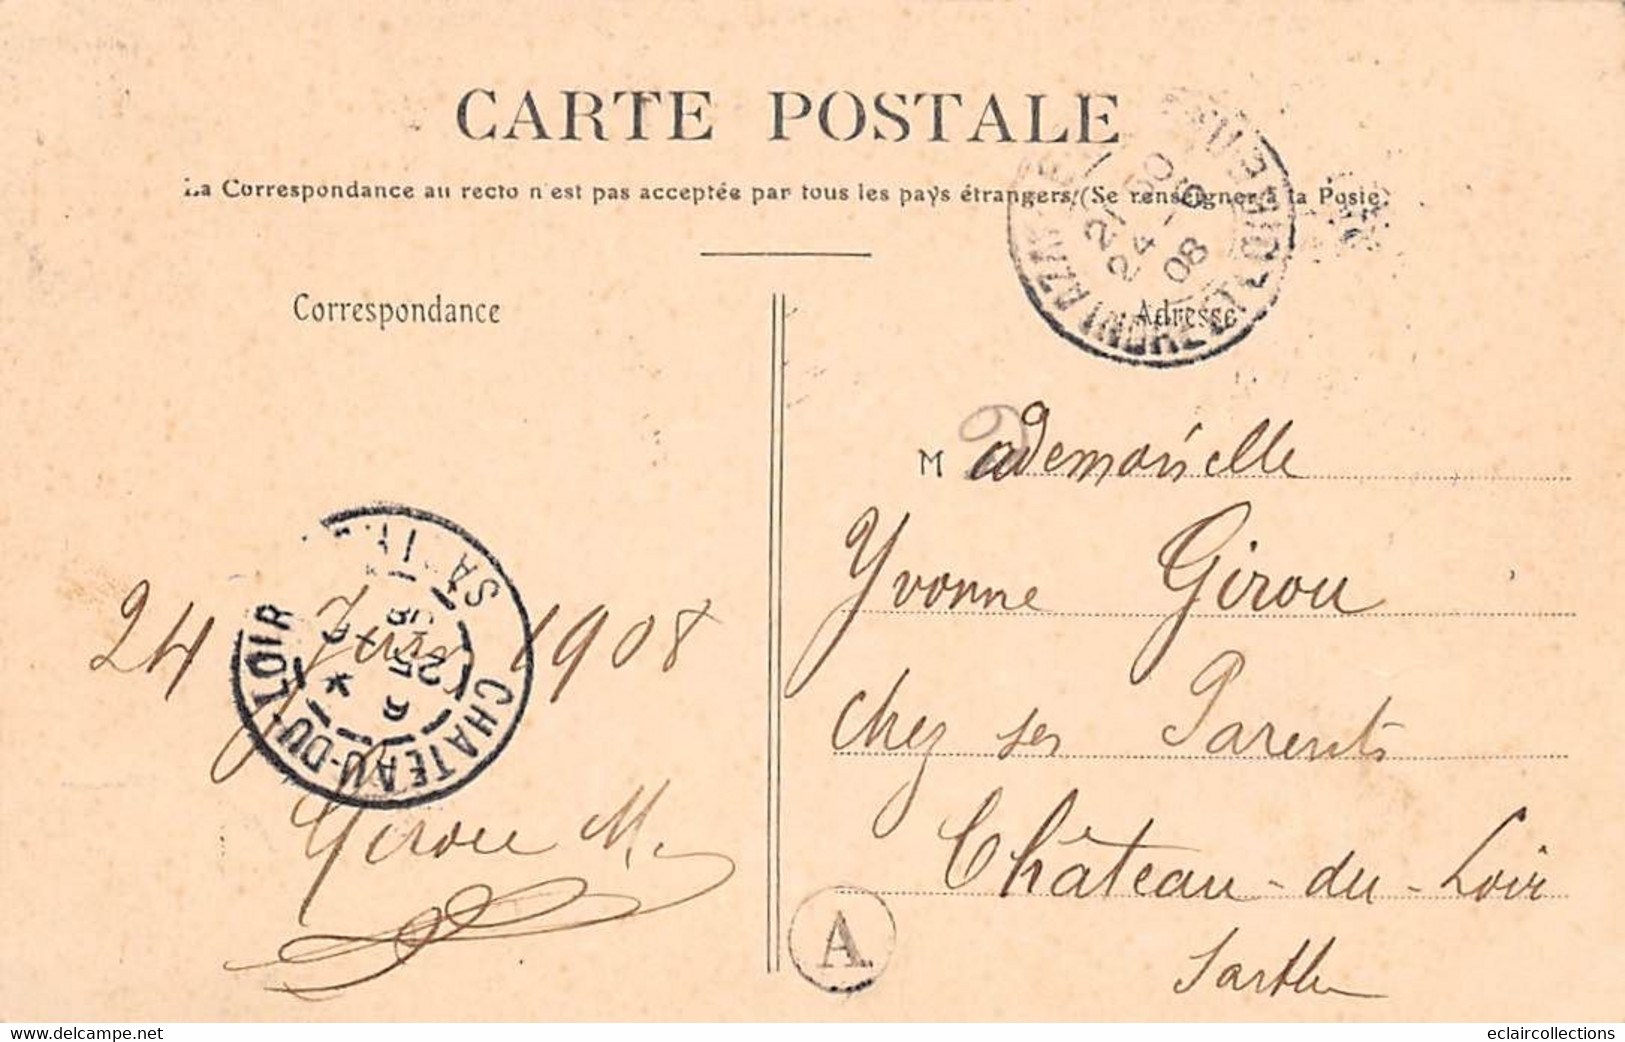 CARTE POSTALE
La Correspondance au recto n'est pas acceptée par tous les pays étrangers (Se renseigner à la Poste)
Correspondance
Adresse
INDRE ET LOIRE
24 - 6
08
Mademoiselle
Yvonne Girou
chez ses Parents
Château-du-Loir
Sarthe
24 Juin 1908
Girou M.
CHATEAU-DU-LOIR
25
A
www.delcampe.net
eclaircollections